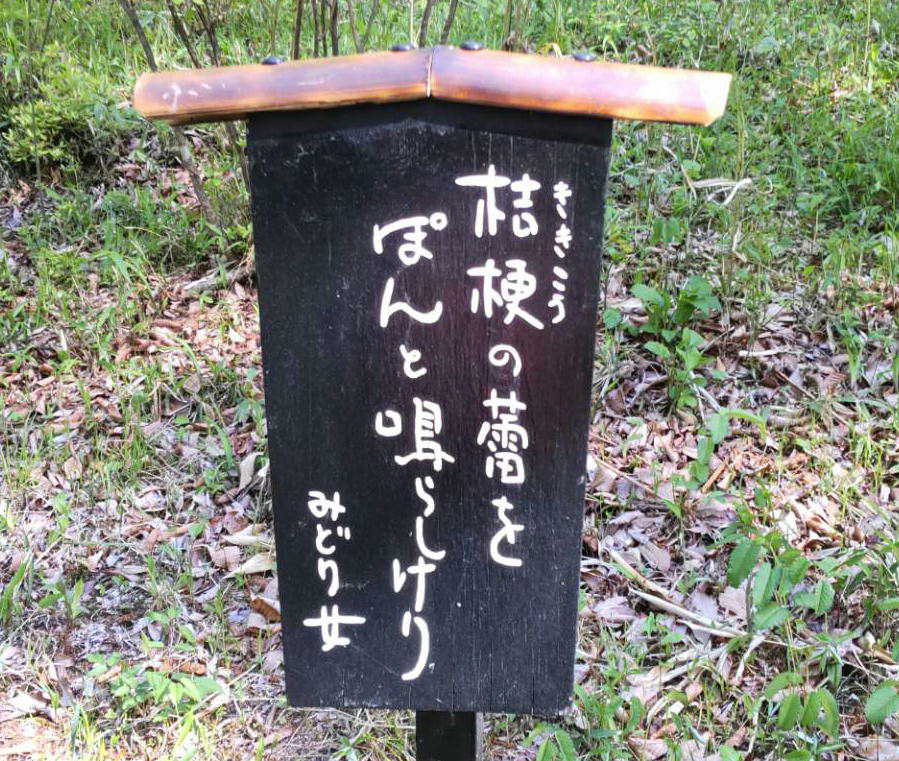 桔梗の蕾を
ききこう
ぽんと鳴らしけり
みどり女